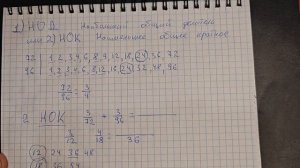 1) НОД Наибольший общий делитель
или 2) НОК Наименьшее общее кратное
72 | 1, 2, 3, 4, 6, 8, 9, 12, 18, 24, 36, 72
96 | 1, 2, 3, 4, 6, 8, 12, 16, 24, 32, 48, 96
72/96 = 3/4
2. НОК 3/72 + 3/96 =
3/12 4/18 = 36
12 24 36 48
18 36 54